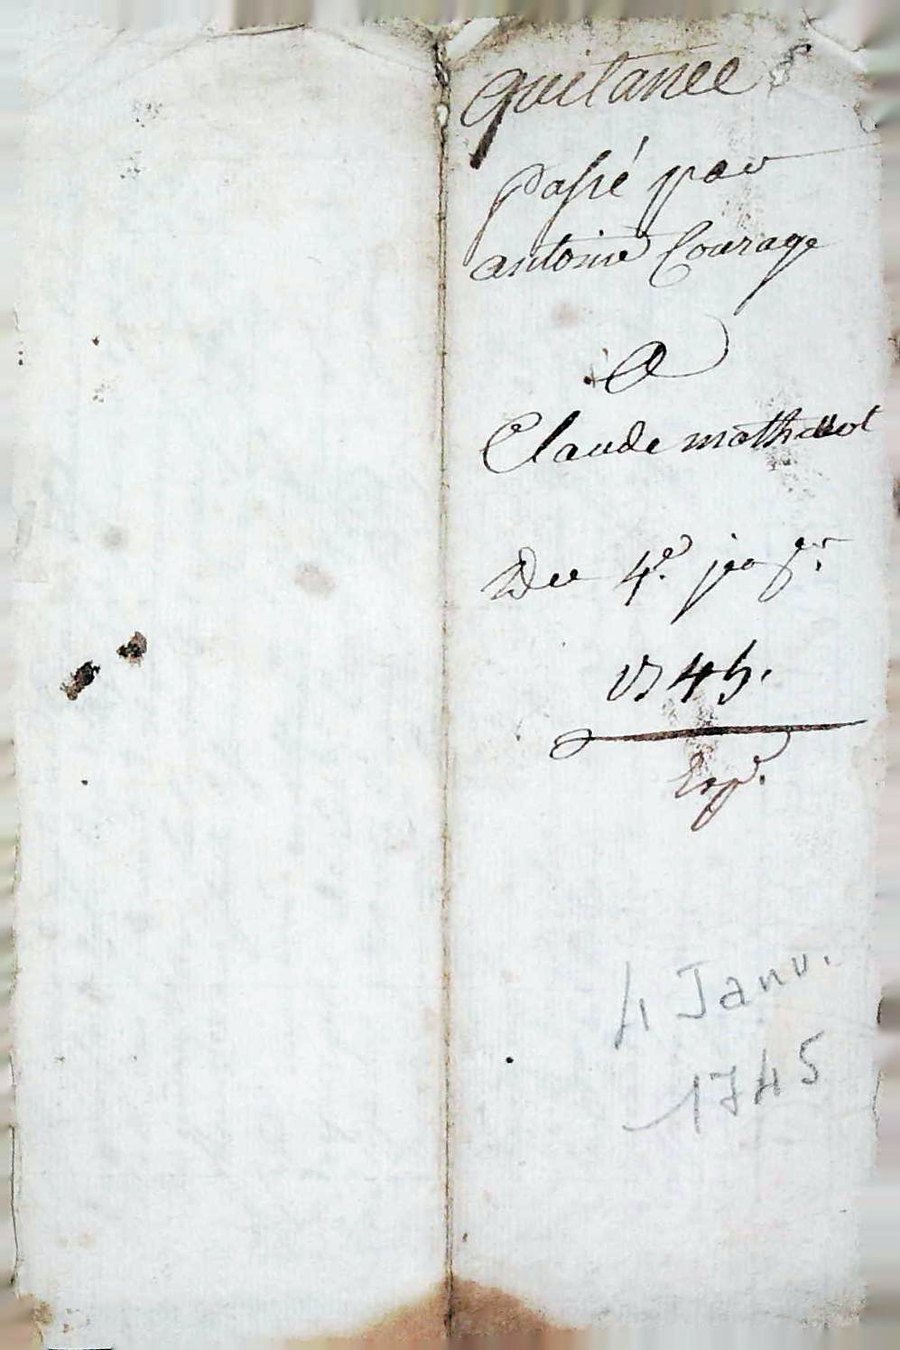 quitance
passé par
antoine Courage
A
Claude
Du 4e
1745.
Exp.
4 Janv.
1745